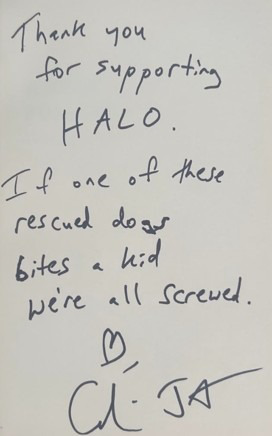 Thank you
for supporting
HALO.
If one of these
rescued dogs
bites a kid
we're all screwed.